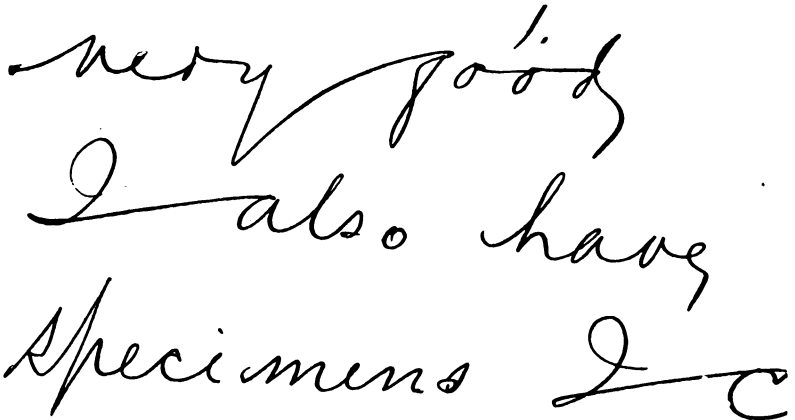 very good
I also have
specimens I c